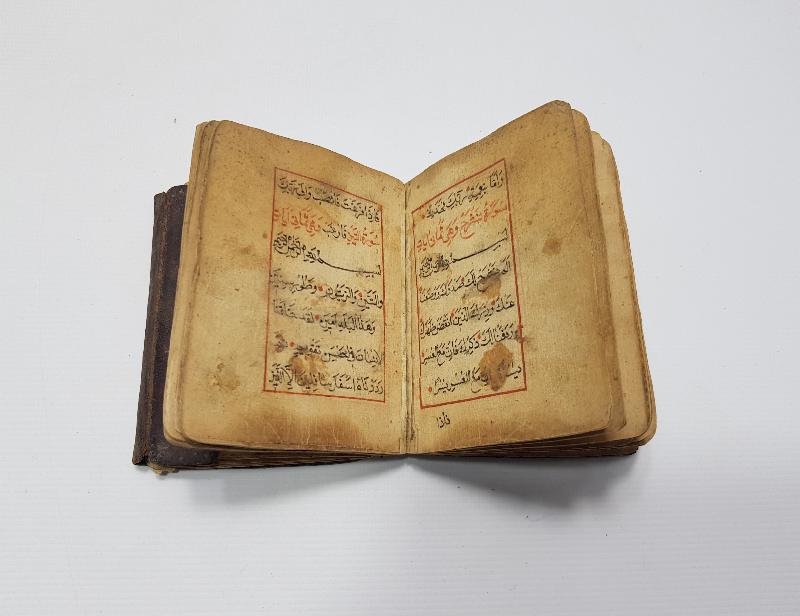 واما بنعمة ربك فحدث
سورة نشرح وهي ثمان ايات
بسم الله الرحمن الرحيم
الم نشرح لك صدرك ووضعنا
عنك وزرك الذي انقض ظهرك
ورفعنا لك ذكرك فان مع العسر
يسرا ان مع العسر يسرا
فاذا
فاذا فرغت فانصب والى ربك
سورة التين فارغب وهي ثماني ايات
بسم الله الرحمن الرحيم
والتين والزيتون وطور سينين
وهذا البلد الامين لقد خلقنا
الانسان في احسن تقويم ثم
رددناه اسفل سافلين الا الذين